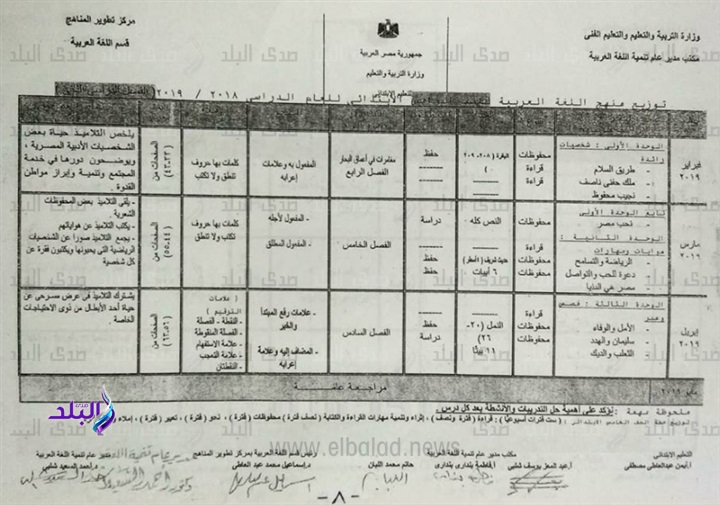 مركز تطوير المناهج
قسم اللغة العربية
جمهورية مصر العربية
وزارة التربية والتعليم
التعليم الابتدائى
وزارة التربية والتعليم والتعليم الفنى
مكتب مدير عام تنمية اللغة العربية
توزيع منهج اللغة العربية الابتدائى للعام الدراسى ٢٠١٨ / ٢٠١٩
فبراير ٢٠١٩
الوحدة الأولى : شخصيات رائدة
- طريق السلام
- ملك حفنى ناصف
- نجيب محفوظ
محفوظات
قراءة
قراءة
البقرة (٢٠٨، ٢٠٩)
حفظ
مغامرات فى أعماق البحار
الفصل الرابع
المفعول به وعلامات إعرابه
كلمات بها حروف تنطق ولا تكتب
الصفحات من (٣٣-٤٣)
يلخص التلاميذ حياة بعض الشخصيات الأدبية المصرية ، ويوضحون دورها فى خدمة المجتمع وتنمية وإبراز مواطن القدوة .
مارس ٢٠١٩
تابع الوحدة الأولى
- نحب مصر
الوحدة الثانية : هوايات ومهارات
- الرياضة والتسامح
- دعوة للحب والتواصل
- مصر هى الدنيا
محفوظات
قراءة
محفوظات
محفوظات
النص كله
حديث شريف
٦ أبيات
دراسة
حفظ
حفظ
الفصل الخامس
- المفعول لأجله
- المفعول المطلق
كلمات بها حروف تكتب ولا تنطق
الصفحات من (٤٤-٥٥)
- يلقى التلاميذ بعض المحفوظات الشعرية
- يكتب التلاميذ عن هواياتهم
- يجمع التلاميذ صورا عن الشخصيات الرياضية التى يحبونها ويكتبون فقرة عن كل شخصية
إبريل ٢٠١٩
الوحدة الثالثة : قصص وعبر
- الأمل والوفاء
- سليمان والهدهد
- الثعلب والديك
قراءة
محفوظات
محفوظات
النمل (٢٠- ٢٦)
١١ بيتا
حفظ
دراسة
الفصل السادس
- علامات رفع المبتدأ والخبر
- المضاف إليه وعلامة إعرابه
( علامات الترقيم )
- النقطة - الفصلة
- الفصلة المنقوطة
- علامة الاستفهام
- علامة التعجب
- النقطتان
الصفحات من (٥٦-٦٣)
يشترك التلاميذ فى عرض مسرحى عن حياة أحد الأبطال من ذوى الاحتياجات الخاصة .
مايو ٢٠١٩
مراجعة عامة
ملحوظة مهمة : يؤكد على أهمية حل التدريبات والأنشطة بعد كل درس .
( ست فترات أسبوعيا ) : قراءة ( فترة ونصف ) ، إثراء وتنمية مهارات القراءة والكتابة ( نصف فترة ) محفوظات ( فترة ) ، نحو ( فترة ) ، تعبير ( فترة ) ، إملاء
صدى البلد
www.elbalad.news
التعليم الابتدائى
أ.أيمن عبدالعاطى مصطفى
مكتب مدير عام تنمية اللغة العربية
أ.عبد المعز يوسف شلبى
أ.فاطمة بندارى بندارى
هاتم محمد اللبان
رئيس قسم اللغة العربية بمركز تطوير المناهج
د.إسماعيل محمد عبد العاطى
مدير عام تنمية اللغة العربية
د.أحمد السعيد شلبى
-٨-